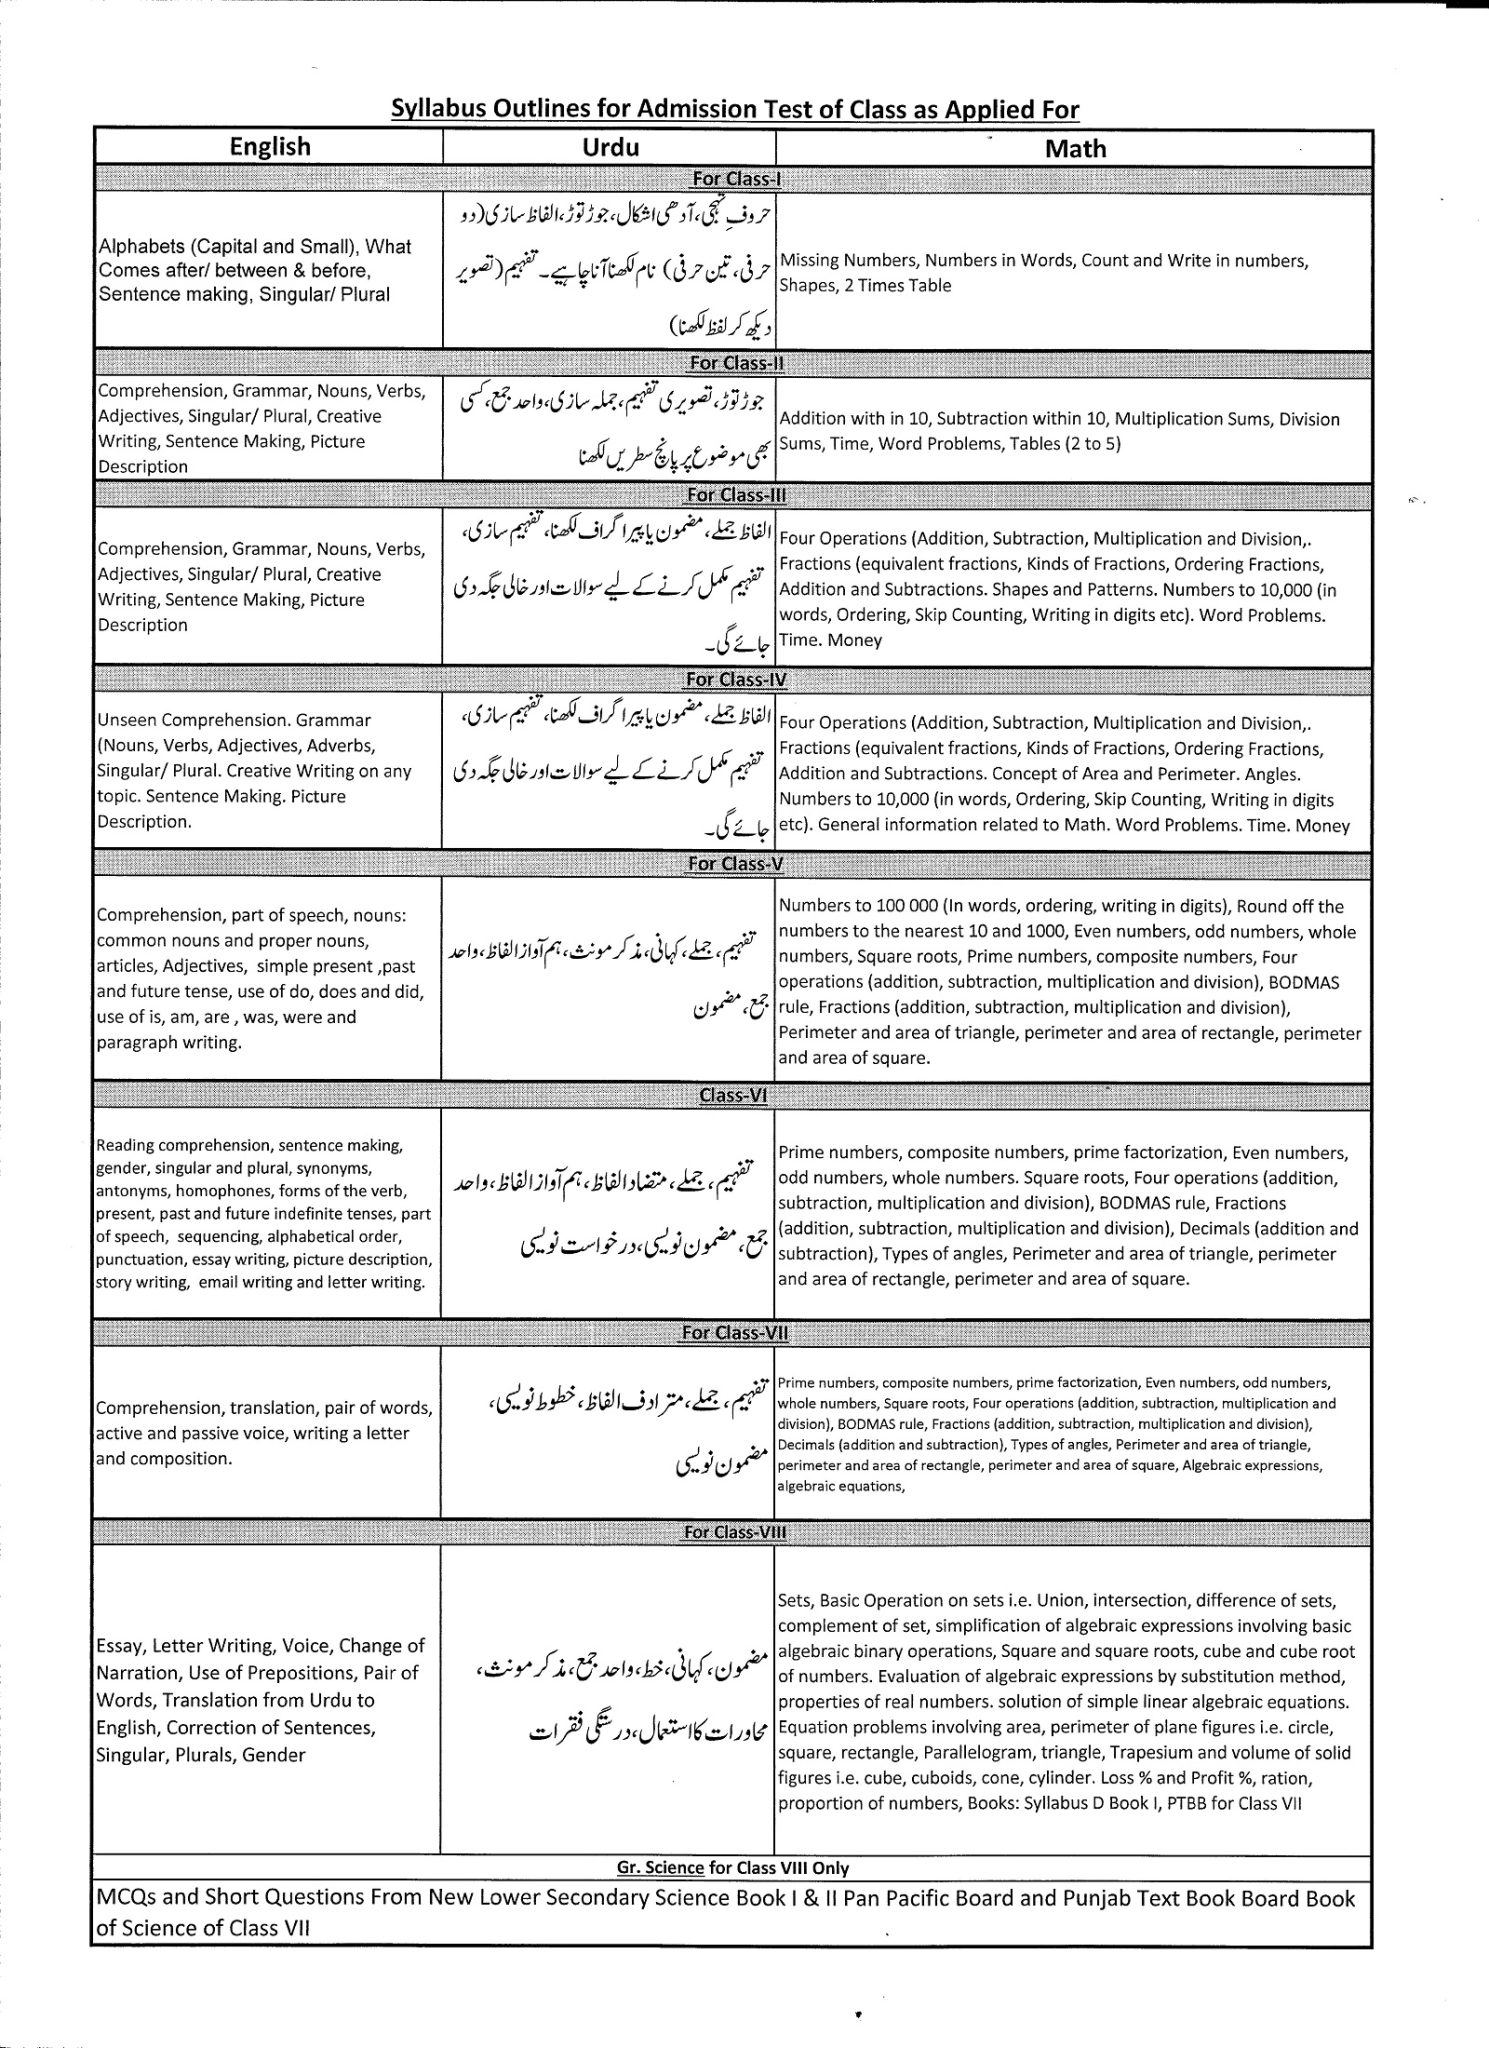 Syllabus Outlines for Admission Test of Class as Applied For
English
Urdu
Math
For Class-I
Alphabets (Capital and Small), What
Comes after/ between & before,
Sentence making, Singular/ Plural
حروفِ تہجی، آدھی اشکال، جوڑ توڑ، الفاظ سازی (دو
حرفی، تین حرفی) نام لکھنا آنا چاہیے۔ تفہیم (تصویر
دیکھ کر لفظ لکھنا)
Missing Numbers, Numbers in Words, Count and Write in numbers,
Shapes, 2 Times Table
For Class-II
Comprehension, Grammar, Nouns, Verbs,
Adjectives, Singular/ Plural, Creative
Writing, Sentence Making, Picture
Description
جوڑ توڑ، تصویری تفہیم، جملہ سازی، واحد جمع، کسی
بھی موضوع پر پانچ سطریں لکھنا
Addition with in 10, Subtraction within 10, Multiplication Sums, Division
Sums, Time, Word Problems, Tables (2 to 5)
For Class-III
Comprehension, Grammar, Nouns, Verbs,
Adjectives, Singular/ Plural, Creative
Writing, Sentence Making, Picture
Description
الفاظ جملے، مضمون یا پیرا گراف لکھنا، تفہیم سازی،
تفہیم مکمل کرنے کے لیے سوالات اور خالی جگہ دی
جائے گی۔
Four Operations (Addition, Subtraction, Multiplication and Division,.
Fractions (equivalent fractions, Kinds of Fractions, Ordering Fractions,
Addition and Subtractions. Shapes and Patterns. Numbers to 10,000 (in
words, Ordering, Skip Counting, Writing in digits etc). Word Problems.
Time. Money
For Class-IV
Unseen Comprehension. Grammar
(Nouns, Verbs, Adjectives, Adverbs,
Singular/ Plural. Creative Writing on any
topic. Sentence Making. Picture
Description.
الفاظ جملے، مضمون یا پیرا گراف لکھنا، تفہیم سازی،
تفہیم مکمل کرنے کے لیے سوالات اور خالی جگہ دی
جائے گی۔
Four Operations (Addition, Subtraction, Multiplication and Division,.
Fractions (equivalent fractions, Kinds of Fractions, Ordering Fractions,
Addition and Subtractions. Concept of Area and Perimeter. Angles.
Numbers to 10,000 (in words, Ordering, Skip Counting, Writing in digits
etc). General information related to Math. Word Problems. Time. Money
For Class-V
Comprehension, part of speech, nouns:
common nouns and proper nouns,
articles, Adjectives, simple present ,past
and future tense, use of do, does and did,
use of is, am, are , was, were and
paragraph writing.
تفہیم، جملے، کہانی، مذکر مونث، ہم آواز الفاظ، واحد
جمع، مضمون
Numbers to 100 000 (In words, ordering, writing in digits), Round off the
numbers to the nearest 10 and 1000, Even numbers, odd numbers, whole
numbers, Square roots, Prime numbers, composite numbers, Four
operations (addition, subtraction, multiplication and division), BODMAS
rule, Fractions (addition, subtraction, multiplication and division),
Perimeter and area of triangle, perimeter and area of rectangle, perimeter
and area of square.
Class-VI
Reading comprehension, sentence making,
gender, singular and plural, synonyms,
antonyms, homophones, forms of the verb,
present, past and future indefinite tenses, part
of speech, sequencing, alphabetical order,
punctuation, essay writing, picture description,
story writing, email writing and letter writing.
تفہیم، جملے، متضاد الفاظ، ہم آواز الفاظ، واحد
جمع، مضمون نویسی، درخواست نویسی
Prime numbers, composite numbers, prime factorization, Even numbers,
odd numbers, whole numbers. Square roots, Four operations (addition,
subtraction, multiplication and division), BODMAS rule, Fractions
(addition, subtraction, multiplication and division), Decimals (addition and
subtraction), Types of angles, Perimeter and area of triangle, perimeter
and area of rectangle, perimeter and area of square.
For Class-VII
Comprehension, translation, pair of words,
active and passive voice, writing a letter
and composition.
تفہیم، جملے، مترادف الفاظ، خطوط نویسی،
مضمون نویسی
Prime numbers, composite numbers, prime factorization, Even numbers, odd numbers,
whole numbers, Square roots, Four operations (addition, subtraction, multiplication and
division), BODMAS rule, Fractions (addition, subtraction, multiplication and division),
Decimals (addition and subtraction), Types of angles, Perimeter and area of triangle,
perimeter and area of rectangle, perimeter and area of square, Algebraic expressions,
algebraic equations,
For Class-VIII
Essay, Letter Writing, Voice, Change of
Narration, Use of Prepositions, Pair of
Words, Translation from Urdu to
English, Correction of Sentences,
Singular, Plurals, Gender
مضمون، کہانی، خط، واحد جمع، مذکر مونث،
محاورات کا استعمال، درستگی فقرات
Sets, Basic Operation on sets i.e. Union, intersection, difference of sets,
complement of set, simplification of algebraic expressions involving basic
algebraic binary operations, Square and square roots, cube and cube root
of numbers. Evaluation of algebraic expressions by substitution method,
properties of real numbers. solution of simple linear algebraic equations.
Equation problems involving area, perimeter of plane figures i.e. circle,
square, rectangle, Parallelogram, triangle, Trapesium and volume of solid
figures i.e. cube, cuboids, cone, cylinder. Loss % and Profit %, ration,
proportion of numbers, Books: Syllabus D Book I, PTBB for Class VII
Gr. Science for Class VIII Only
MCQs and Short Questions From New Lower Secondary Science Book I & II Pan Pacific Board and Punjab Text Book Board Book
of Science of Class VII